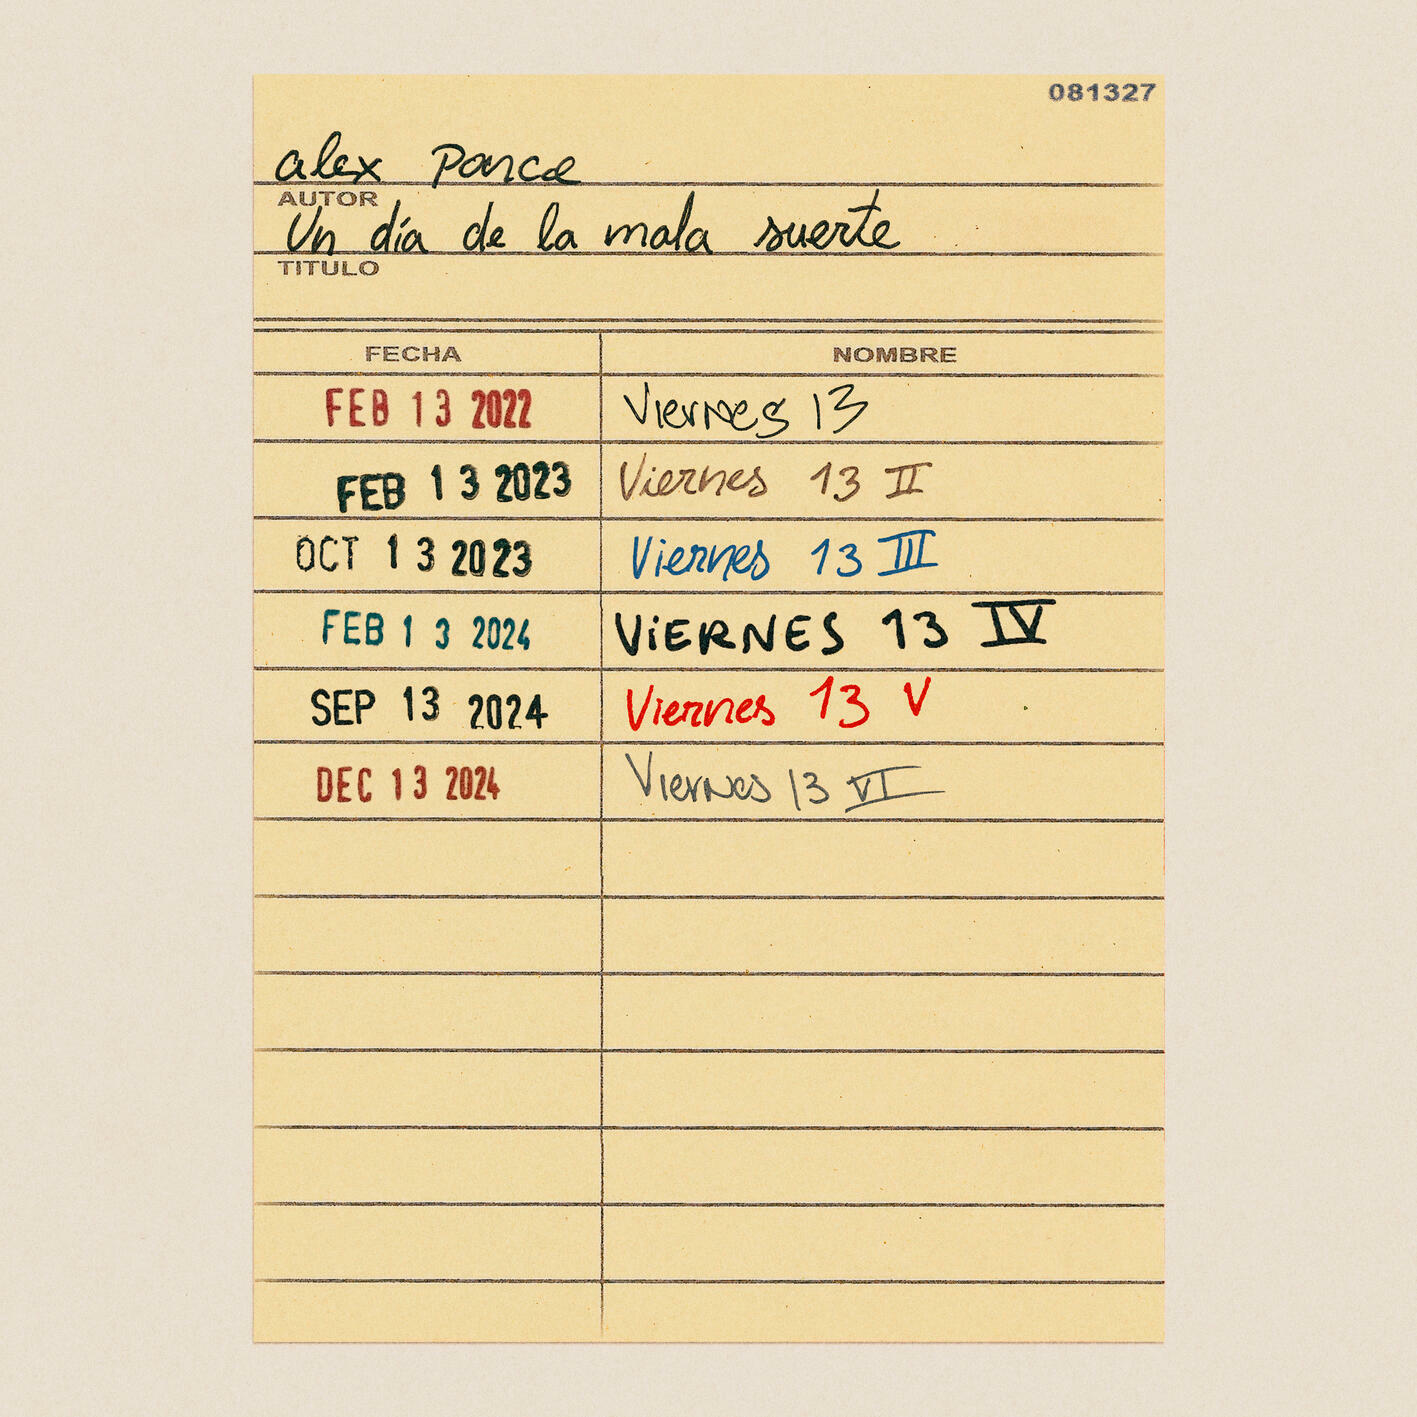 081327
alex Ponce
AUTOR
Un día de la mala suerte
TITULO
FECHA NOMBRE
FEB 13 2022 Viernes 13
FEB 13 2023 Viernes 13 II
OCT 13 2023 Viernes 13 III
FEB 13 2024 ViERNES 13 IV
SEP 13 2024 Viernes 13 V
DEC 13 2024 Viernes 13 VI